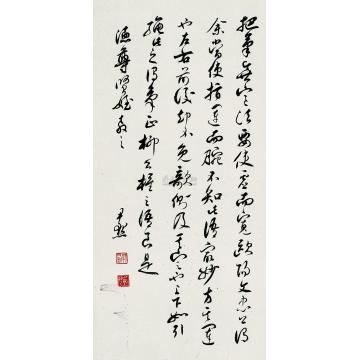 把筆無定法要使虛而寬歐陽文忠公謂
余當使指運而腕不知此語最妙方其運
也左右前後卻不免欹側及其定也上下如引
繩此之謂筆正柳公權之語良是
尊賢姪
尹默